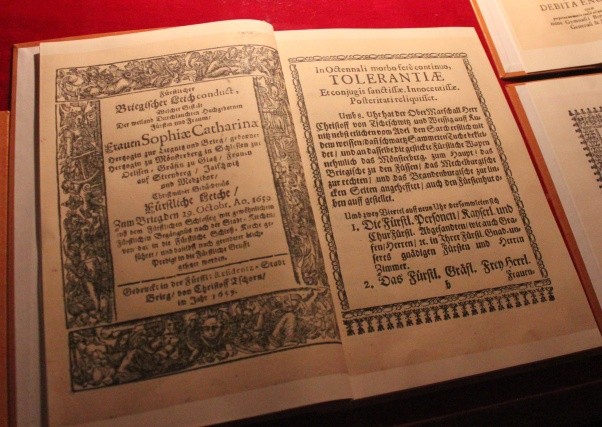 Fürstlicher
Briegischer Leichconduct,
Welcher Gestalt
Der weiland Durchlauchten Hochgebornen
Fürstin und Frauen/
Frauen Sophiæ Catharinæ
Hertzogin zur Liegnitz und Brieg/ geborner
Hertzogin zu Münsterberg in Schlesien zur
Oelssen/ Gräfin zu Glatz/ Frauen
auf Sternberg/ Jaischwitz
und Medzibor/
Fürstliche Leiche/
Zum Brieg den 29. Octobr. Ao. 1659
Gedruckt in der Fürstl: Residentz-Stadt
Brieg/ von Christoff Tschorn/
im Jahr 1659.
In Octennali morbo ferè continuo,
TOLERANTIÆ
Et conjugii sanctissimæ, Innocentissimæ,
Posteritati reliquisset.
Umb 8. Uhr hat der Ober Marschall Herr
Christoff von Tschischwitz und
nebst etlichen vom Adel den Sarch erstlich mit
dem weissen/ dann schwartz Sammeten Tuche beklei-
det/ und an dasselbe die gestickte Fürstliche Wapen
nehmlich das Münsterberg. zum Haupt/ das
Briegische zu den Füssen/ das Mechelburgische
zur rechten/ und das Brandenburgische zur lin-
cken Seiten angehefftet/ auch den Fürstenhut o-
ben auff gestellt.
Umb zwey Viertel auff neun Uhr versamleten sich
1. Die Fürstl. Personen/ Kayserl. und
ChurFürstl. Abgesandten/ wie auch Grä-
fen/ Herren/ in Ihrer Fürstl. Gnad. un-
seres gnädigen Fürsten und Herren
Zimmer.
2. Das Fürstl. Gräfl. Frey Herrl.
b
Frauen-
DEBITA